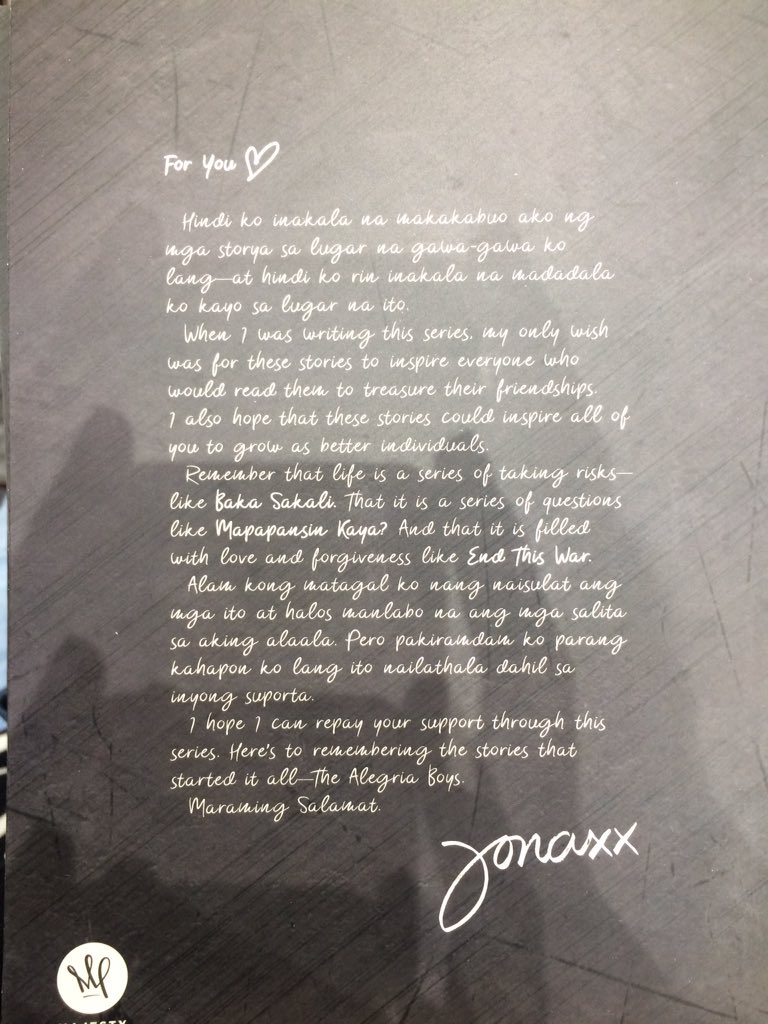 For You
Hindi ko inakala na makakabuo ako ng
mga storya sa lugar na gawa-gawa ko
lang—at hindi ko rin inakala na madadala
ko kayo sa lugar na ito.
When I was writing this series, my only wish
was for these stories to inspire everyone who
would read them to treasure their friendships.
I also hope that these stories could inspire all of
you to grow as better individuals.
Remember that life is a series of taking risks—
like Baka Sakali. That it is a series of questions
like Mapapansin Kaya? And that it is filled
with love and forgiveness like End This War.
Alam kong matagal ko nang naisulat ang
mga ito at halos manlabo na ang mga salita
sa aking alaala. Pero pakiramdam ko parang
kahapon ko lang ito nailathala dahil sa
inyong suporta.
I hope I can repay your support through this
series. Here's to remembering the stories that
started it all—The Alegria Boys.
Maraming Salamat.
Jonaxx
MP